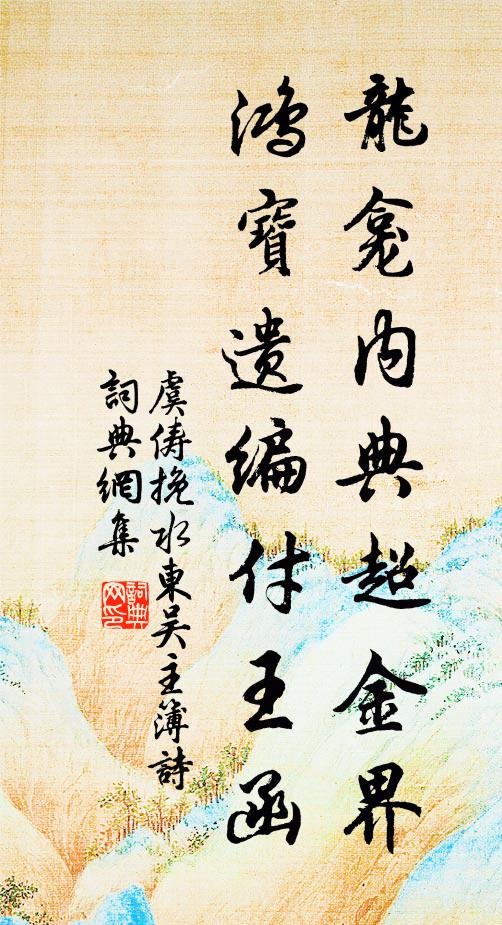 龍龕内典超金界
鴻寶遺编付王函
虞俦挽水東吴主簿詩
詞典網集
詞典
网印